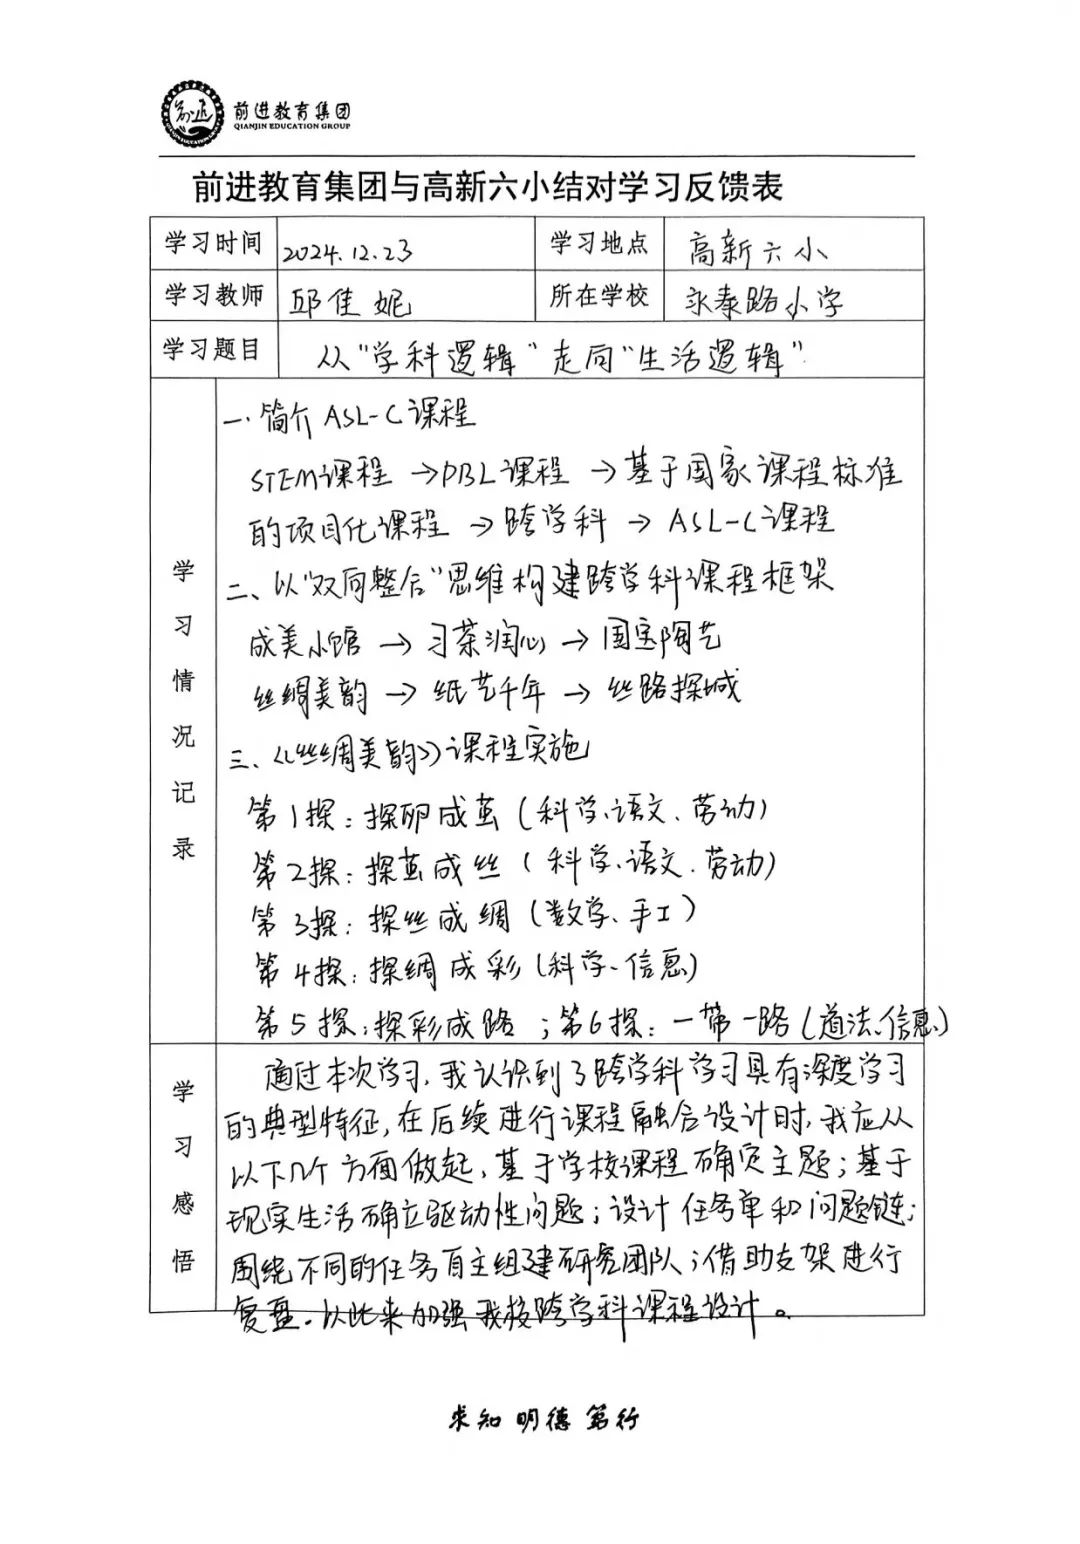 前进教育集团
QIANJIN EDUCATION GROUP
前进教育集团与高新六小结对学习反馈表
学习时间 2024.12.23 学习地点 高新六小
学习教师 邱佳妮 所在学校 永泰路小学
学习题目 从“学科逻辑”走向“生活逻辑”
学习情况记录
一.简介ASL-C课程
STEM课程→PBL课程→基于国家课程标准
的项目化课程→跨学科→ASL-C课程
二、以“双向整合”思维构建跨学科课程框架
成美小馆→习茶润心→国宝陶艺
丝绸美韵→纸艺千年→丝路探城
三、《丝绸美韵》课程实施
第1探:探卵成茧(科学、语文、劳动)
第2探:探茧成丝(科学、语文、劳动)
第3探:探丝成绸(数学、手工)
第4探:探绸成彩(科学、信息)
第5探:探彩成路;第6探:一带一路(道法、信息)
学习感悟
通过本次学习,我认识到了跨学科学习具有深度学习
的典型特征,在后续进行课程融合设计时,我应从
以下几个方面做起,基于学校课程确定主题;基于
现实生活确立驱动性问题;设计任务单和问题链;
围绕不同的任务自主组建研究团队;借助支架进行
复盘.以此来加强我校跨学科课程设计。
求知 明德 笃行